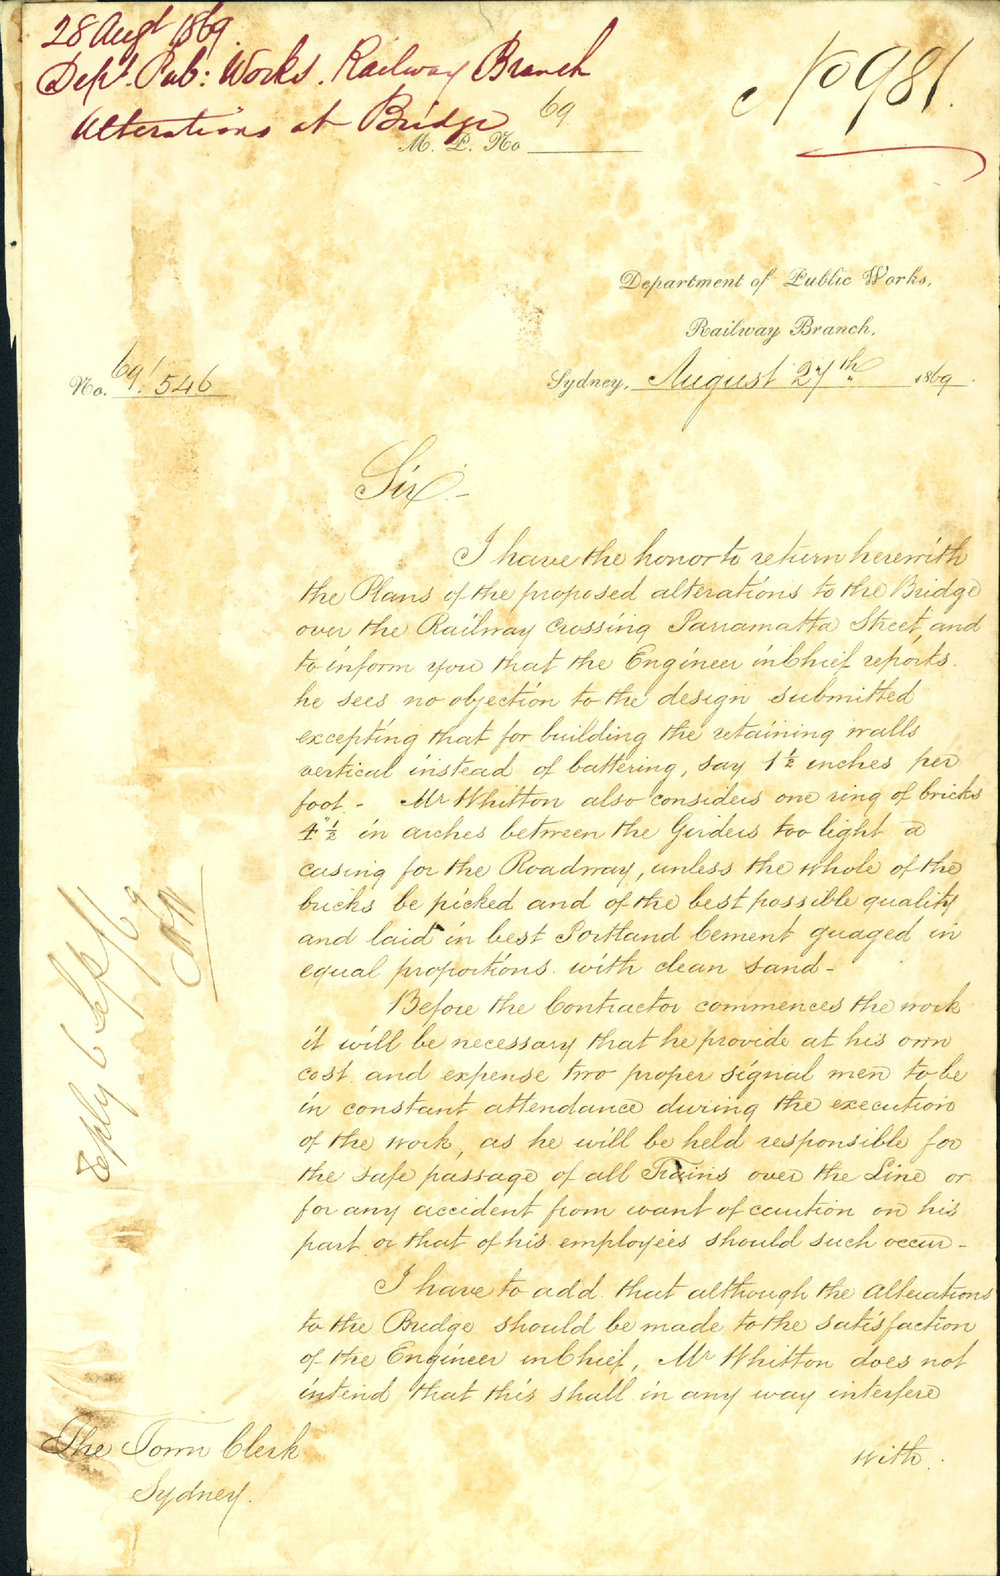 28 Augt 1869.
Dept. Pub: Works. Railway Branch
Alterations at Bridge
No 981.
69
M. P. No
Department of Public Works,
Railway Branch,
No. 69/546
Sydney, August 27th 1869.
Sir.-
I have the honor to return herewith
the Plans of the proposed alterations to the Bridge
over the Railway crossing Parramatta Street, and
to inform you that the Engineer in Chief reports.
he sees no objection to the design submitted
excepting that for building the retaining walls
vertical instead of battering, say 1½ inches per
foot - Mr Whitton also considers one ring of bricks
4"½ in arches between the Girders too light a
casing for the Roadway, unless the whole of the
bricks be picked and of the best possible quality
and laid in best Portland Cement guaged in
equal proportions. with clean sand -
Before the Contractor commences the work
it will be necessary that he provide at his own
cost and expense two proper signal men to be
in constant attendance during the execution
of the work, as he will be held responsible for
the safe passage of all Trains over the Line or
for any accident from want of caution on his
part or that of his employees should such occur -
I have to add that although the alterations
to the Bridge should be made to the satisfaction
of the Engineer in Chief, Mr Whitton does not
intend that this shall in any way interfere
with.
The Town Clerk
Sydney.
Reply 6 Sept/69